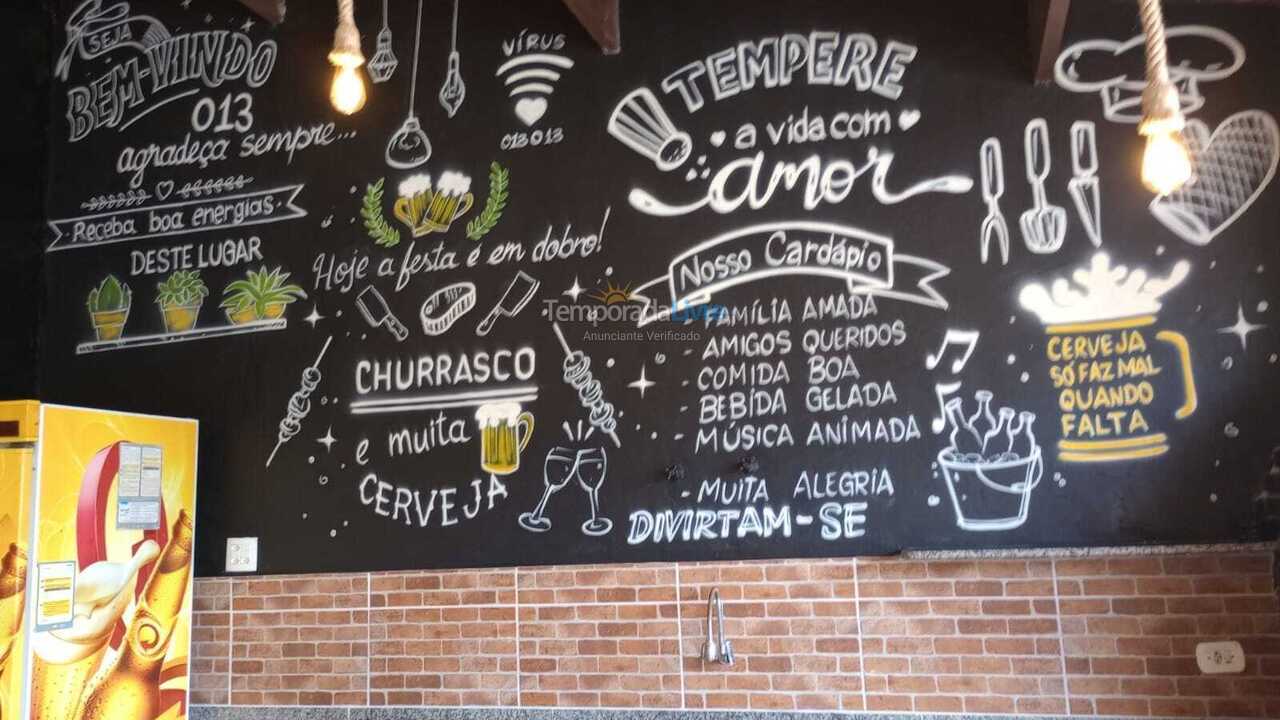 SEJA
BEM-VINDO
013
agradeça sempre...
Receba boa energias
DESTE LUGAR
VÍRUS
013013
Hoje a festa é em dobro!
CHURRASCO
e muita
CERVEJA
TEMPERE
a vida com
amor
Nosso Cardápio
TemporadaLivre
Anunciante Verificado
- FAMÍLIA AMADA
- AMIGOS QUERIDOS
- COMIDA BOA
- BEBIDA GELADA
- MÚSICA ANIMADA
- MUITA ALEGRIA
DIVIRTAM-SE
CERVEJA
SÓ FAZ MAL
QUANDO
FALTA